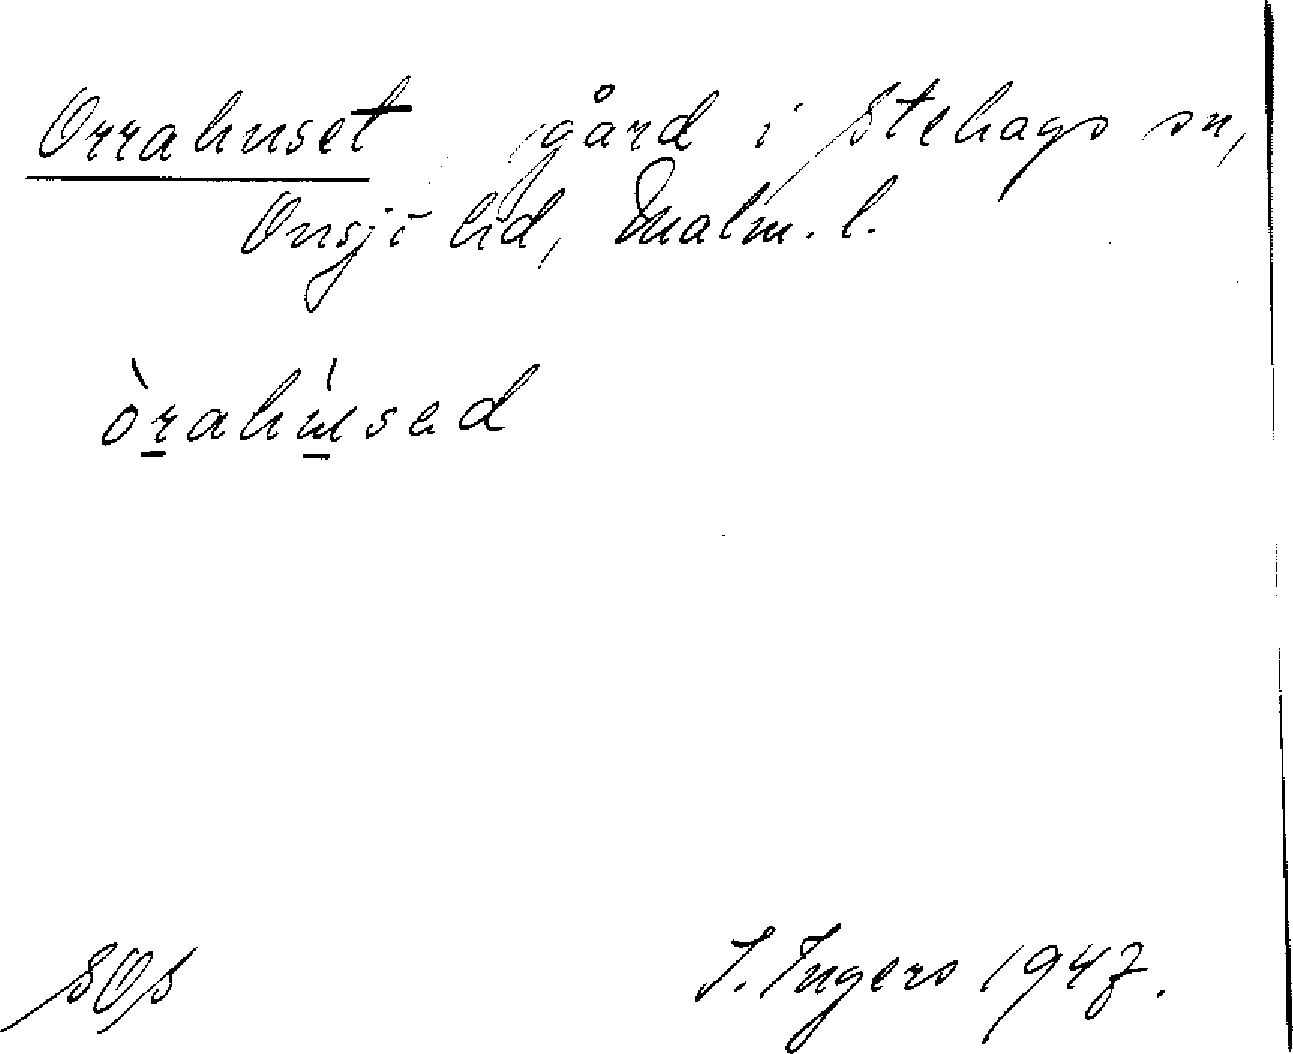 Orrahuset gård i Stehags sn,
Onsjö hd, Malm. l.
òrahu̍sad
SOS I. Ingers 1947.